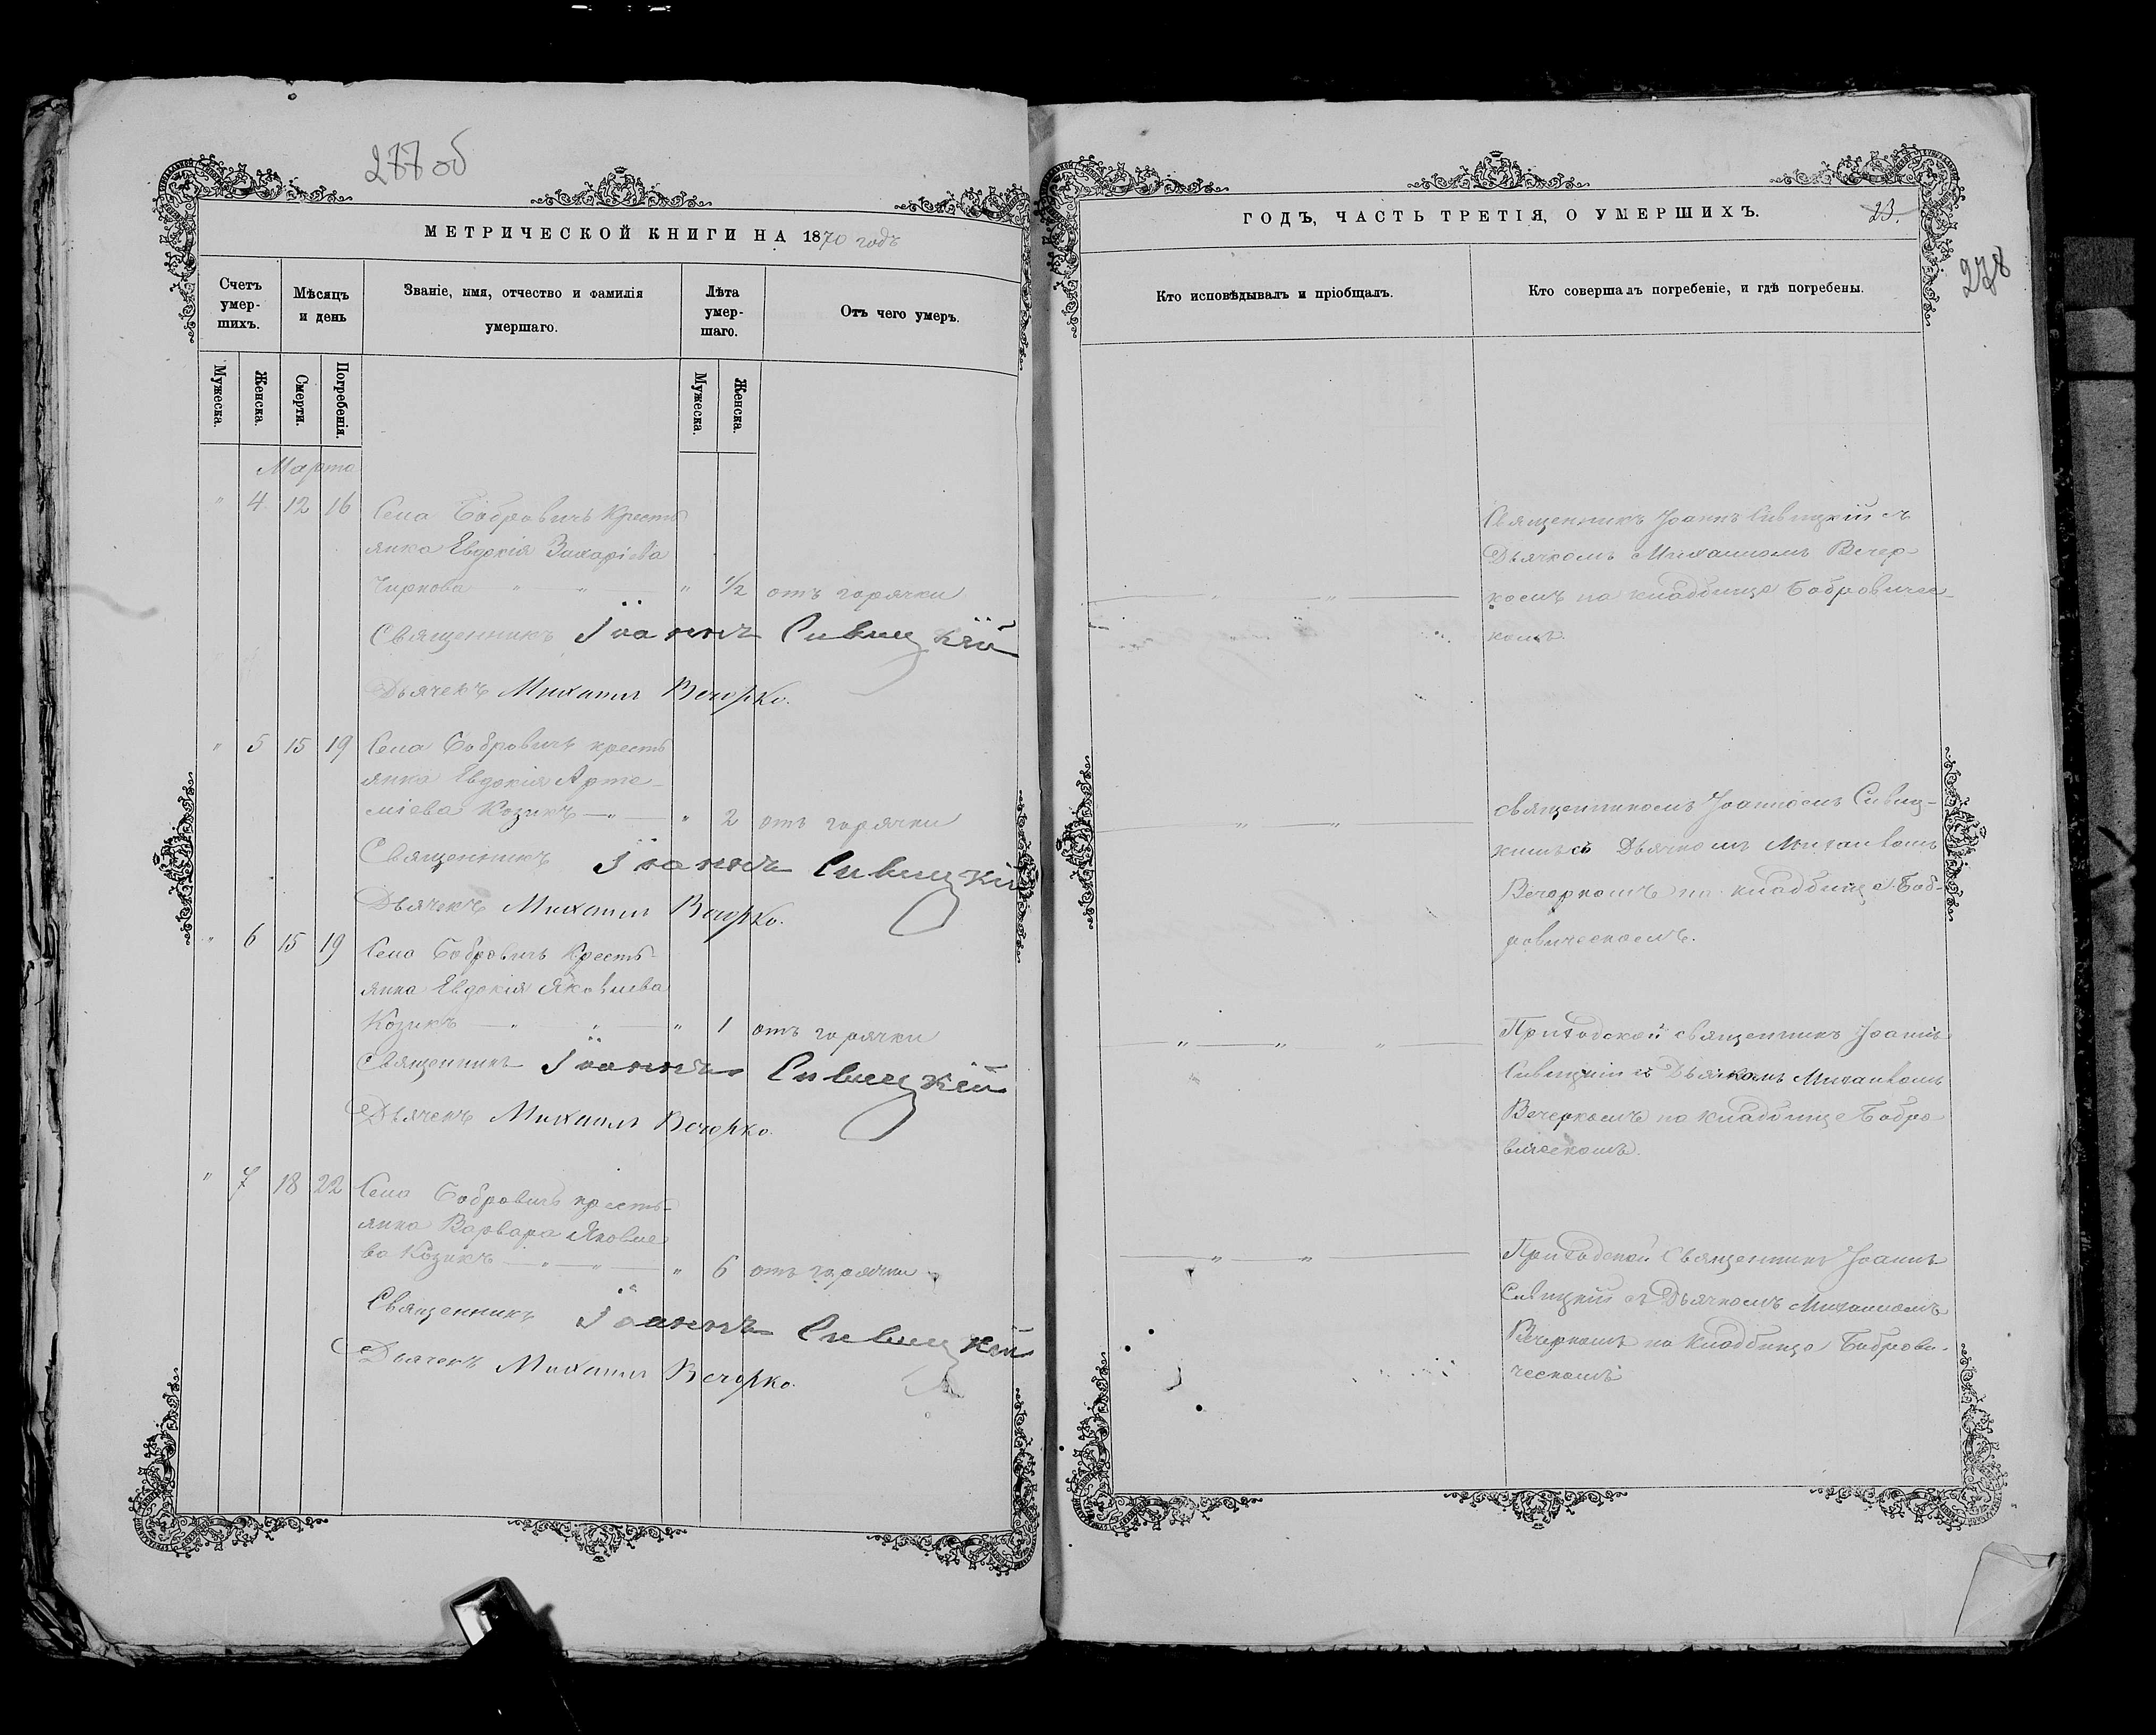 277 об
МЕТРИЧЕСКОЙ КНИГИ НА 1870 годъ
Счетъ умер-шихъ.
Мѣсяцъ и день
Званіе, имя, отчество и фамилія умершаго.
Лѣта умер-шаго.
Отъ чего умеръ.
Мужеска.
Женска.
Смерти.
Погребенія.
Мужеска.
Женска.
Марта
" 4 12 16 Села Бобровичъ кресть
янка Евдокія Захаріева
Чиркова — " — " — " 1/2 отъ горячки
Священникъ Іоаннъ Сивицкій
Дьячекъ Михаилъ Вечорко.
" 5 15 19 Села Бобровичъ кресть
янка Евдокія Арте-
міева Козикъ — " — " 2 отъ горячки
Священникъ Іоаннъ Сивицкій
Дьячекъ Михаилъ Вечорко.
" 6 15 19 Села Бобровичъ кресть-
янка Евдокія Яковлева
Козикъ — " — " — " 1 отъ горячки
Священникъ Іоаннъ Сивицкій
Дьячекъ Михаилъ Вечорко.
" 7 18 22 Села Бобровичъ кресть-
янка Варвара Яковле
ва Козикъ — " — " — " 6 отъ горячки
Священникъ Іоаннъ Сивицкій
Дьячекъ Михаилъ Вечорко.
ГОДЪ, ЧАСТЬ ТРЕТІЯ, О УМЕРШИХЪ.
23.
278
Кто исповѣдывалъ и пріобщалъ.
Кто совершалъ погребеніе, и гдѣ погребены.
Священникъ Іоаннъ Сивицкій съ
Дьячкомъ Михаиломъ Вечер-
— " — " — комъ на кладбище Бобровичес-
комъ.
священникомъ Іоанномъ Сивиц-
— " — " — кимъ съ Дьячкомъ Михаиломъ
Вечеркомъ на кладбище Боб-
ровическомъ.
— " — " — " — Приходской священникъ Іоаннъ
Сивицкій съ Дьячкомъ Михаиломъ
Вечеркомъ на кладбище Бобро
вическомъ.
— " — " — Приходской Священникъ Іоаннъ
Сивицкій съ Дьячкомъ Михаиломъ
Вечеркомъ на кладбище Боброви-
ческомъ